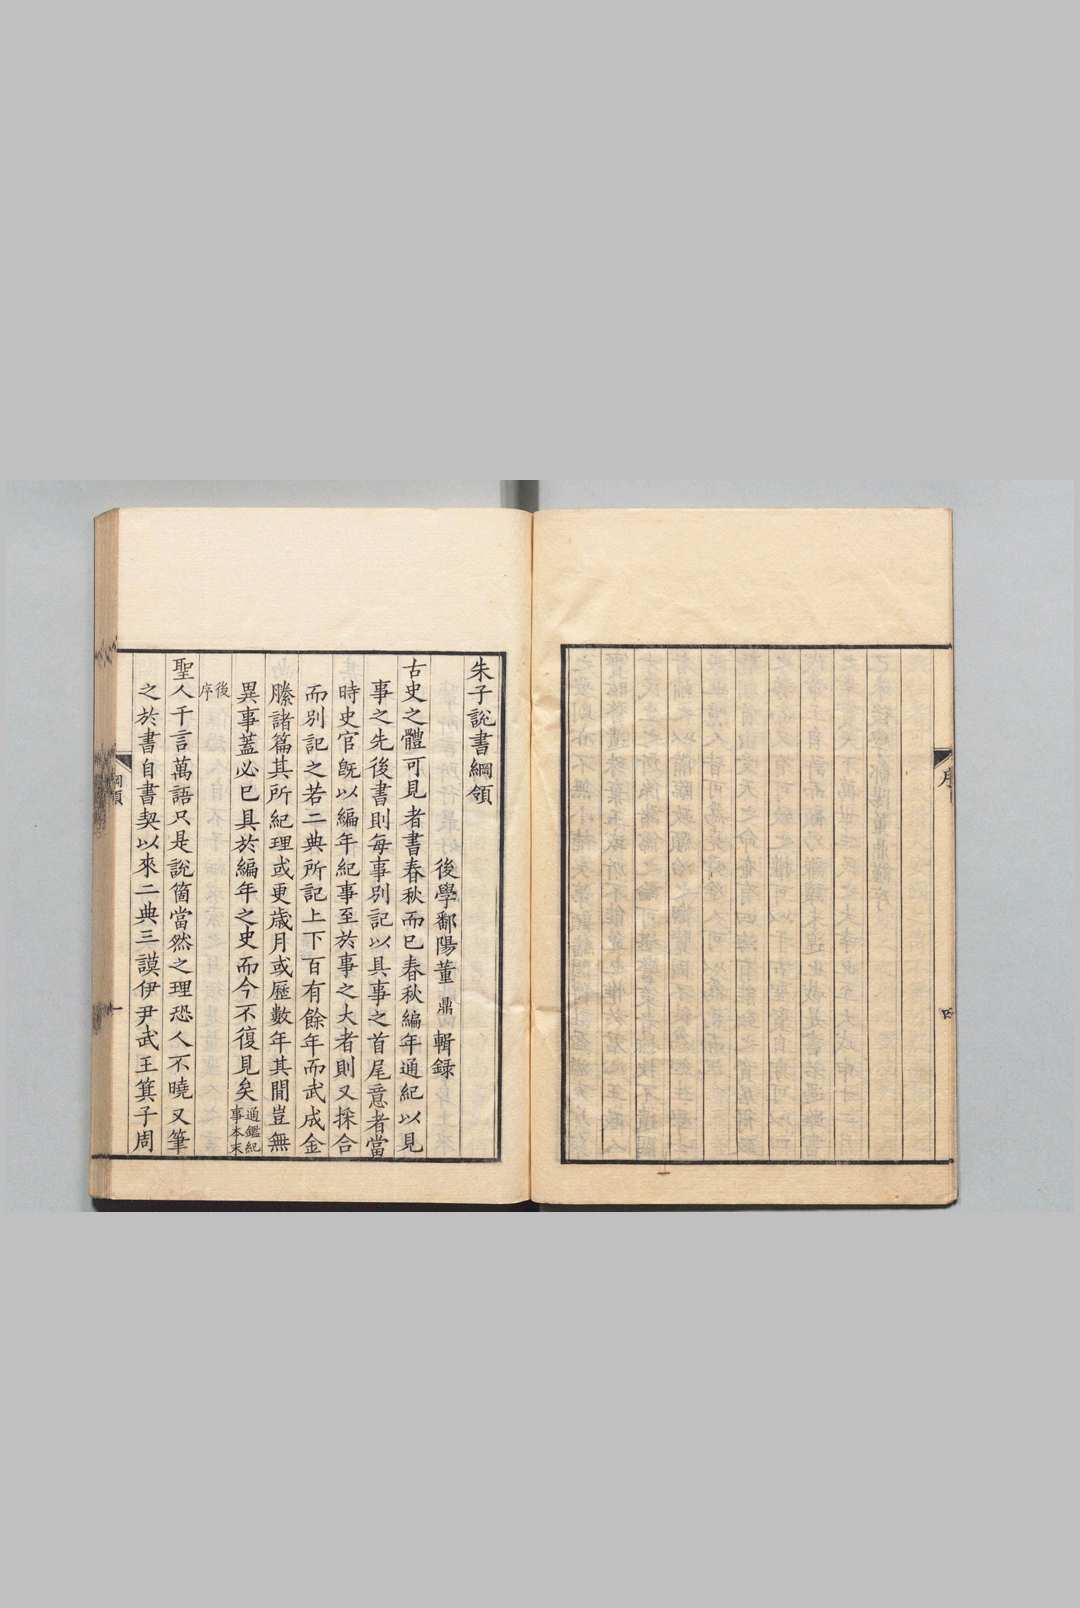 序
四
朱子說書綱領
後學鄱陽董鼎輯録
古史之體可見者書春秋而已春秋編年通紀以見
事之先後書則每事别記以具事之首尾意者當
時史官旣以編年紀事至於事之大者則又採合
而别記之若二典所記上下百有餘年而武成金
縢諸篇其所紀理或更歲月或歷數年其閒豈無
異事蓋必已具於編年之史而今不復見矣通鑑紀事本末
後序
聖人千言萬語只是說箇當然之理恐人不曉又筆
之於書自書契以來二典三謨伊尹武王箕子周
綱領
一